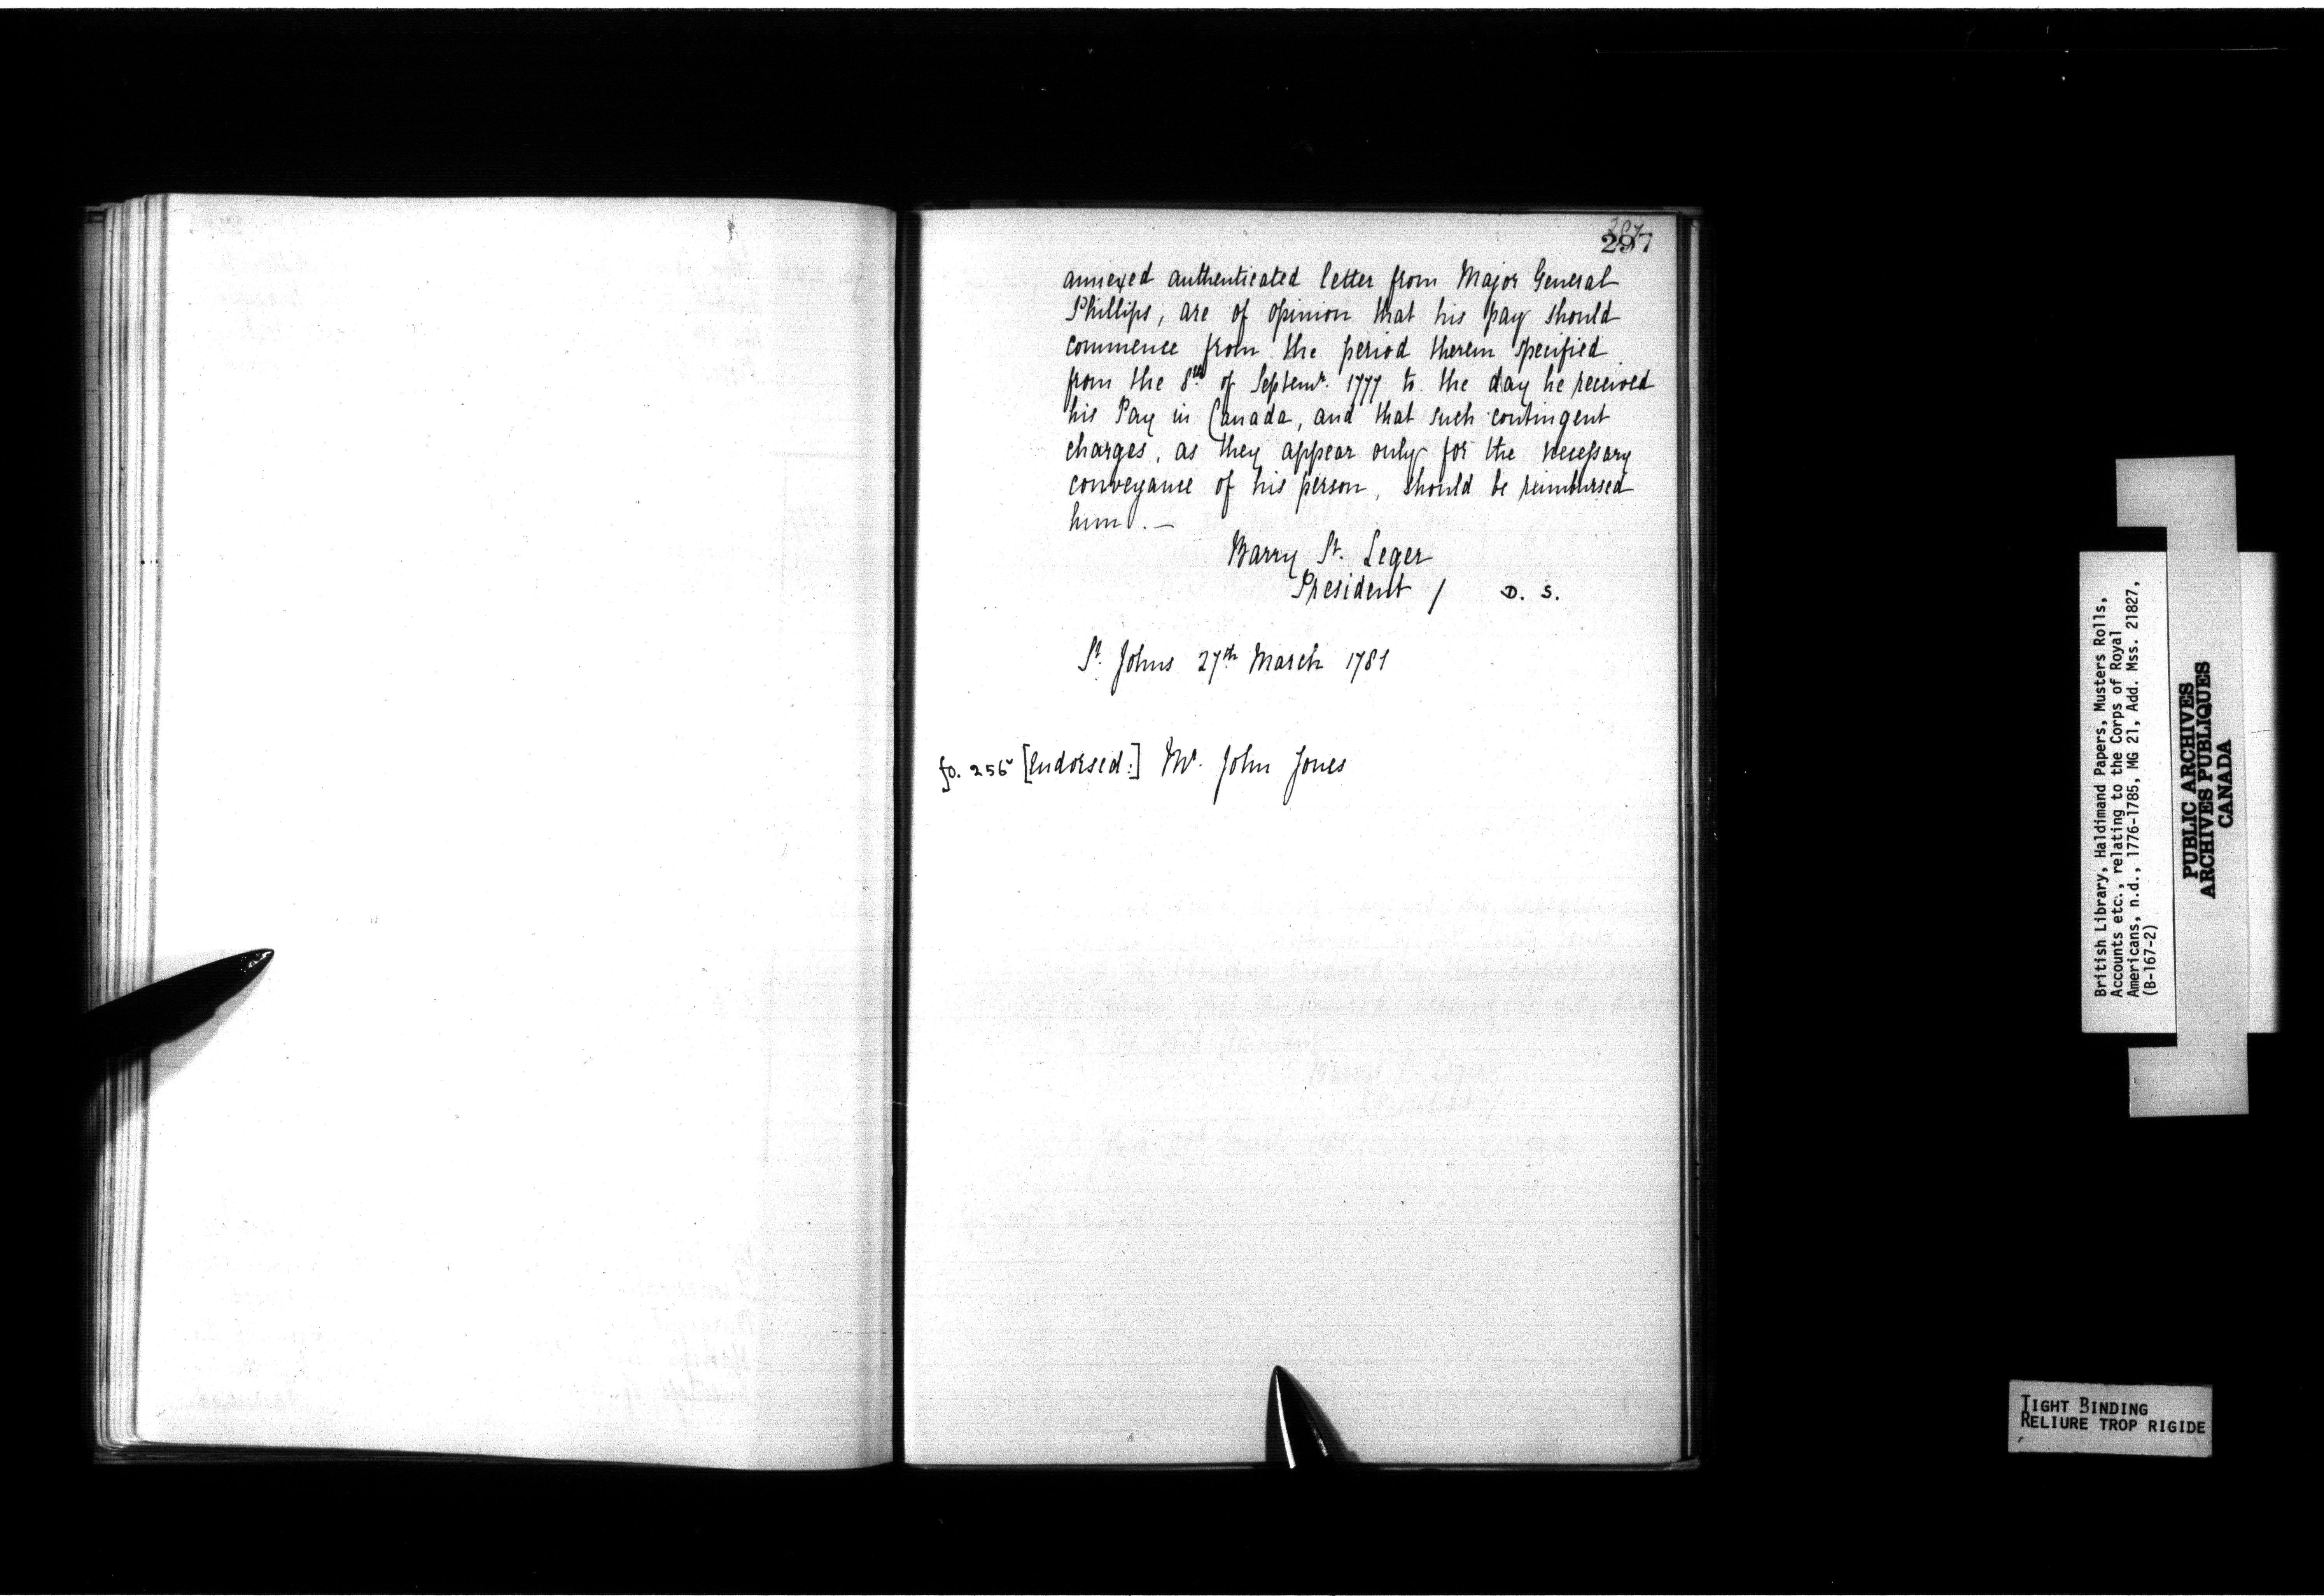 297
annexed authenticated letter from Major General
Phillips, are of opinion that his pay should
commence from the period therein specified
from the 8th of Septemr. 1777 to the day he received
his Pay in Canada, and that such contingent
charges, as they appear only for the necessary
conveyance of his person, should be reimbursed
him. —
Barry St. Leger
President / D. S.
St. Johns 27th March 1781
fo. 256v [Endorsed:] Mr. John Jones
British Library, Haldimand Papers, Musters Rolls,
Accounts etc., relating to the Corps of Royal
Americans, n.d., 1776-1785, MG 21, Add. Mss. 21827,
(B-167-2)
PUBLIC ARCHIVES
ARCHIVES PUBLIQUES
CANADA
TIGHT BINDING
RELIURE TROP RIGIDE